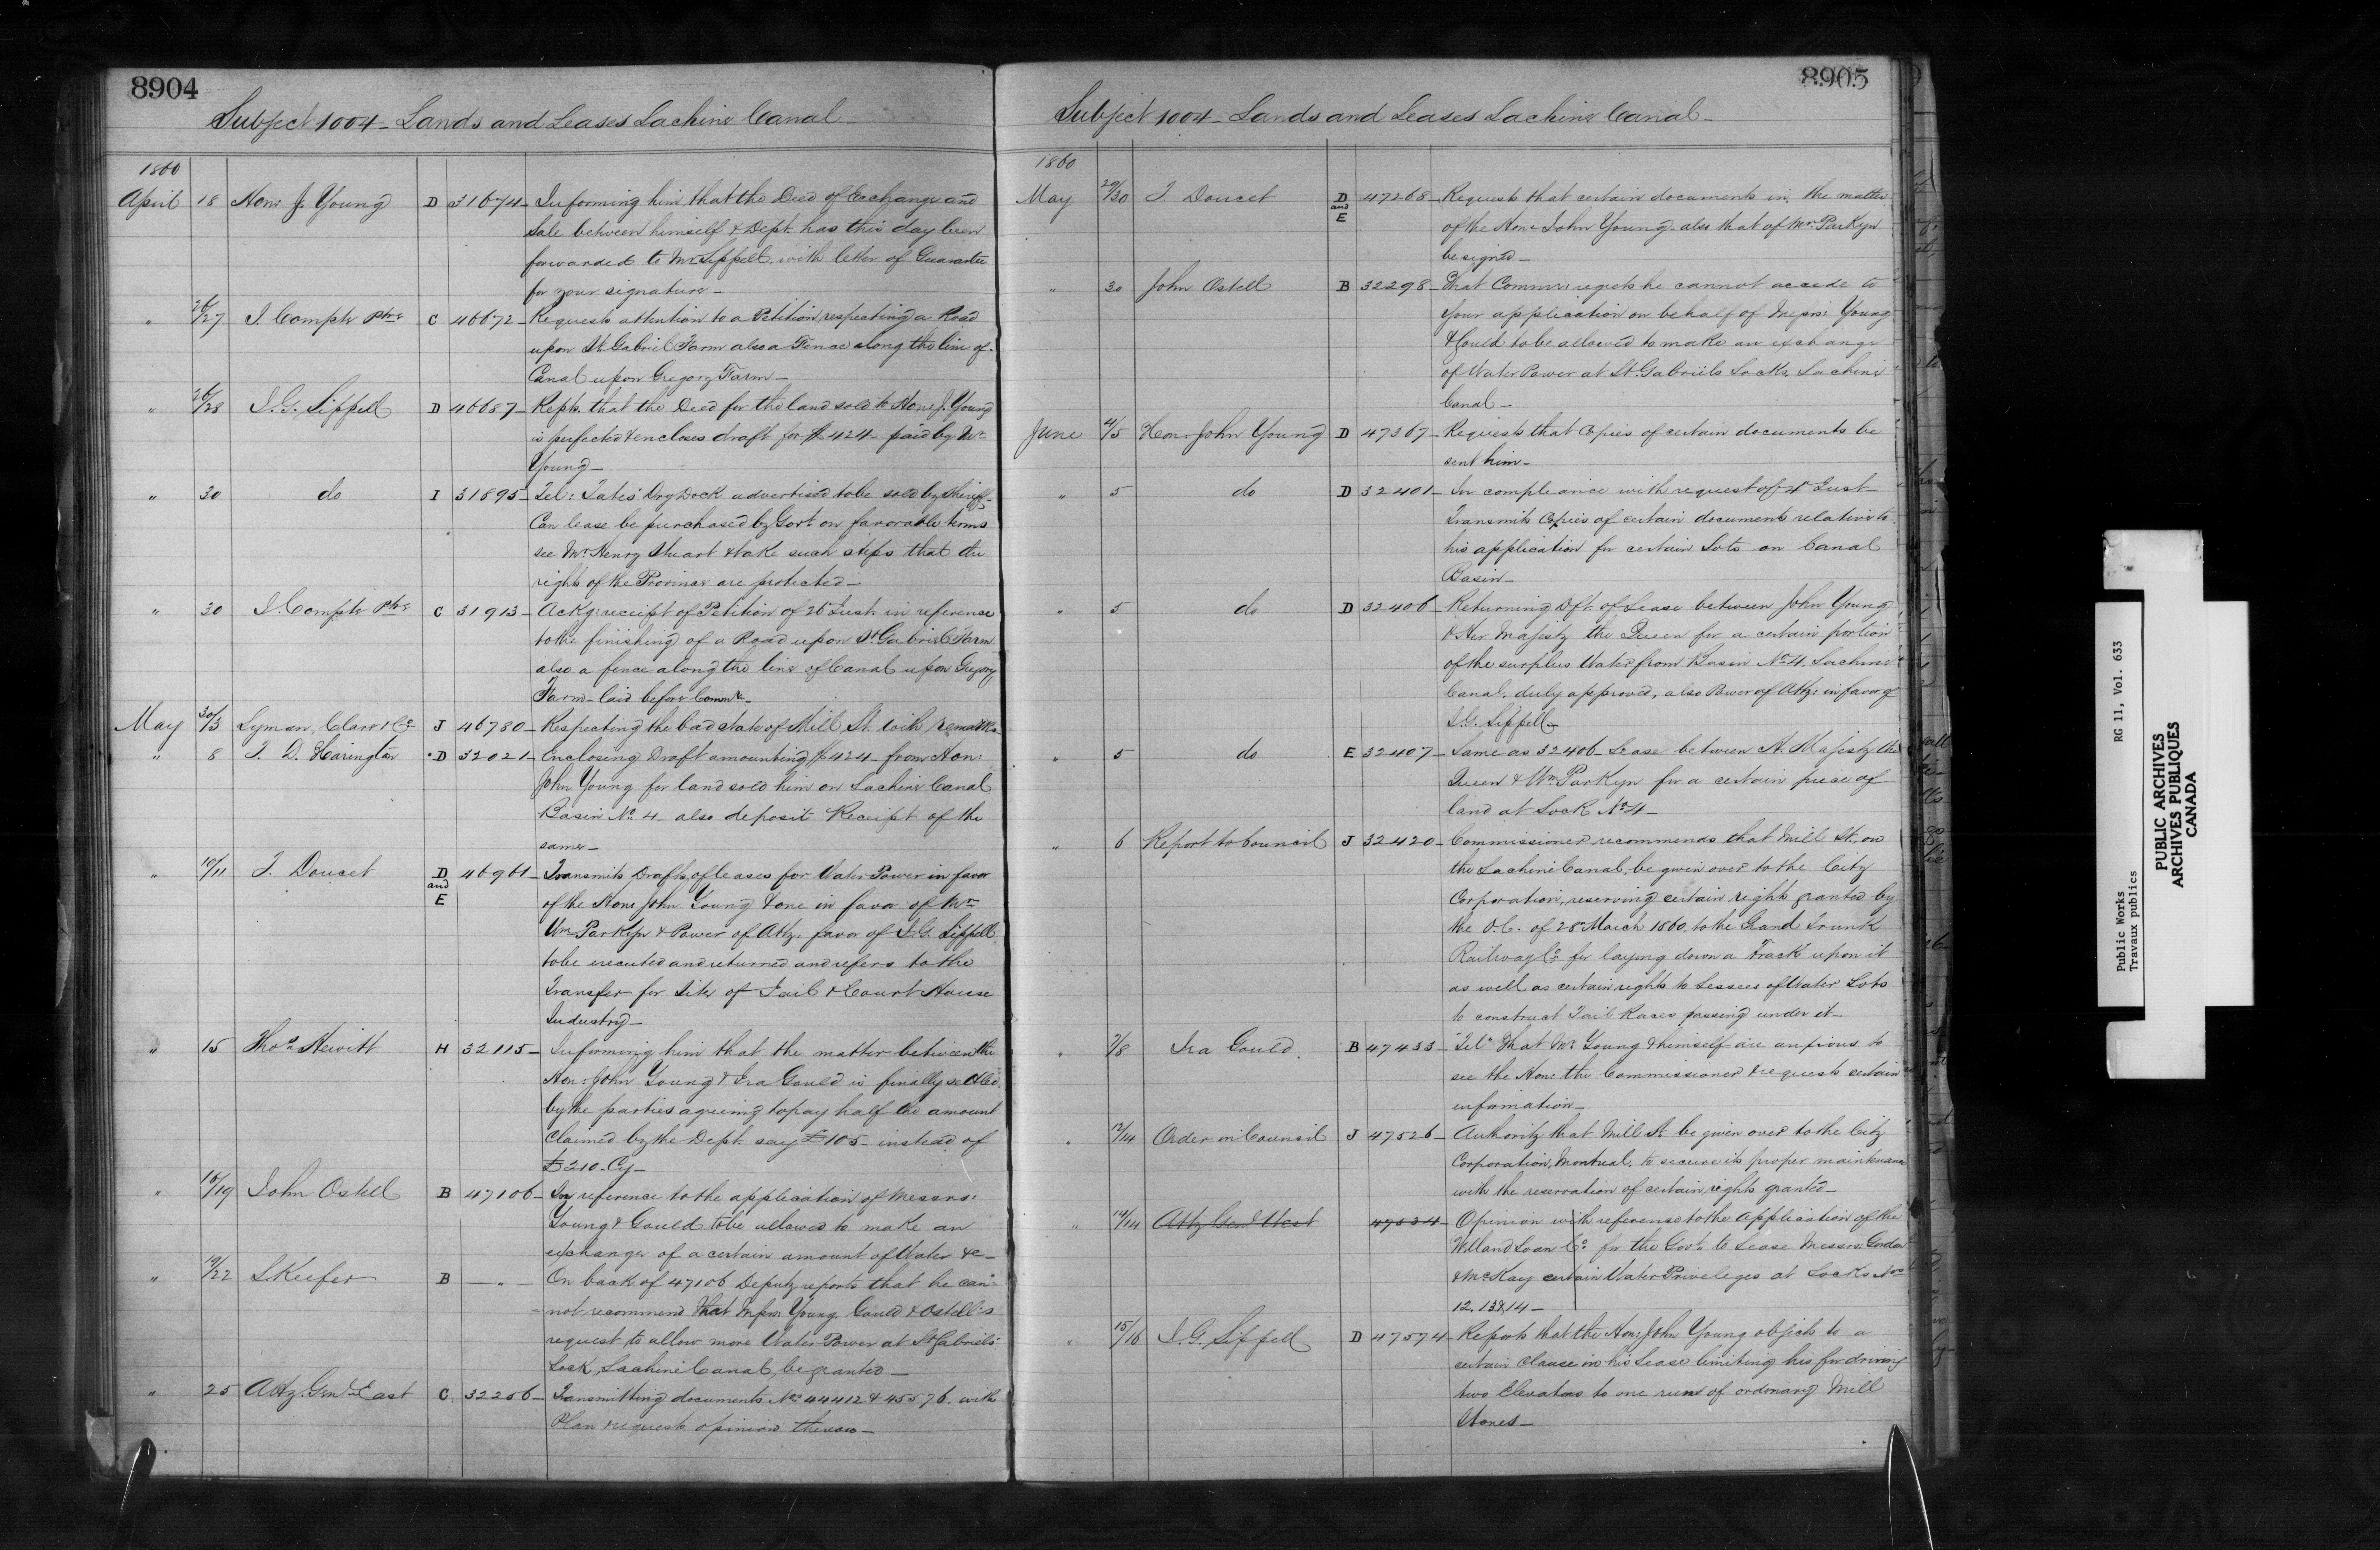 8904
Subject 1004 - Lands and Leases Lachine Canal -
1860
April 18 Hon: J. Young D 31674 - Informing him that the Deed of Exchange and
Sale between himself & Dept. has this day been
forwarded to Mr. Sippell with letter of Guarantee
for your signature -
" 26/27 J. Compte Ptre C 46672 - Requests attention to a Petition respecting a Road
upon St. Gabriel Farm also a Fence along the line of
Canal upon Gregory Farm -
" 26/28 J. G. Sippell D 46687 - Repts. that the Deed for the land sold to Hon: J. Young
is perfected & encloses draft for $424 - paid by Mr.
Young -
" 30 do I 31895 - Tel: Tates' Dry Dock advertised to be sold by Sheriff -
Can lease be purchased by Govt. on favorable terms
see Mr. Henry Stuart & take such steps that the
rights of the Province are protected -
" 30 J. Compte Ptre C 31913 - Ackg: receipt of Petition of 26 Inst. in reference
to the finishing of a Road upon St. Gabriel Farm
also a fence along the line of Canal upon Gregory
Farm - laid before Commr. -
May 30/3 Lyman, Clare & Co. J 46780 - Respecting the bad state of Mill St. with remarks
" 8 T. D. Harington D 32021 - Enclosing Draft amounting $424 - from Hon:
John Young for land sold him on Lachine Canal
Basin No. 4 - also deposit Receipt of the
same -
" 10/11 T. Doucet D and E 46961 - Transmits Drafts of leases for Water Power in favor
of the Hon: John Young & one in favor of Mr.
Wm. Parkyn & Power of Atty. favor of J. G. Sippell
to be executed and returned and refers to the
Transfer for Site of Jail & Court House
Industry -
" 15 Thos. Hewitt H 32115 - Informing him that the matter between the
Hon: John Young & Ira Gould is finally settled,
by the parties agreeing to pay half the amount
claimed by the Dept. say £105 - instead of
£210. Cy -
" 16/19 John Ostell B 47106 - In reference to the application of Messrs:
Young & Gould to be allowed to make an
exchange of a certain amount of Water &c -
" 19/22 S. Keefer B - " - On back of 47106 Deputy reports that he can-
not recommend that Messrs Young Gould & Ostell's
request to allow more Water Power at St. Gabriels'
Lock, Lachine Canal, be granted -
" 25 Atty. Genl. East C 32256 - Transmitting documents Nos. 44412 & 45576 with
Plan & requests opinion thereon -
8905
Subject 1004 - Lands and Leases Lachine Canal -
1860
May 29/30 T. Doucet D and E 47268 - Requests that certain documents in the matter
of the Hon: John Young - also that of Mr. Parkyn
be signed -
" 30 John Ostell B 32298 - That Commr. regrets he cannot accede to
your application on behalf of Messrs: Young
& Gould to be allowed to make an exchange
of Water Power at St. Gabriels Locks, Lachine
Canal -
June 4/5 Hon: John Young D 47367 - Requests that Copies of certain documents be
sent him -
" 5 do D 32401 - In compliance with request of 4th Inst -
Transmits Copies of certain documents relative to
his application for certain Lots on Canal
Basin -
" 5 do D 32406 - Returning Dft. of Lease between John Young
& Her Majesty the Queen for a certain portion
of the surplus Water from Basin No. 4. Lachine
Canal, duly approved, also Power of Atty: in favor of
J. G. Sippell -
" 5 do E 32407 - Same as 32406 - Lease between H. Majesty the
Queen & Wm. Parkyn for a certain piece of
land at Lock No. 4 -
" 6 Report to Council J 32420 - Commissioner recommends that Mill St., on
the Lachine Canal, be given over to the City
Corporation, reserving certain rights granted by
the O. C. of 28 March 1860, to the Grand Trunk
Railway Co. for laying down a Track upon it
as well as certain rights to Lessees of Water Lots
to construct Tail Races passing under it -
" 7/8 Ira Gould B 47433 - Tel: That Mr. Young & himself are anxious to
see the Hon: the Commissioner & requests certain
information -
" 13/14 Order in Council J 47526 - Authority that Mill St. be given over to the City
Corporation, Montreal, to secure its proper maintenance
with the reservation of certain rights granted -
" 14/14 Atty Genl West 47534 - Opinion with reference to the Application of the
Welland Loan Co. for the Govt. to Lease Messrs. Gordon
& McKay certain Water Priveleges at Locks Nos.
12, 13 & 14 -
" 15/16 J. G. Sippell D 47574 - Reports that the Hon: John Young objects to a
certain clause in his Lease limiting his for driving
two Elevators to one run of ordinary Mill
Stones -
Public Works RG 11, Vol. 633
Travaux publics
PUBLIC ARCHIVES
ARCHIVES PUBLIQUES
CANADA